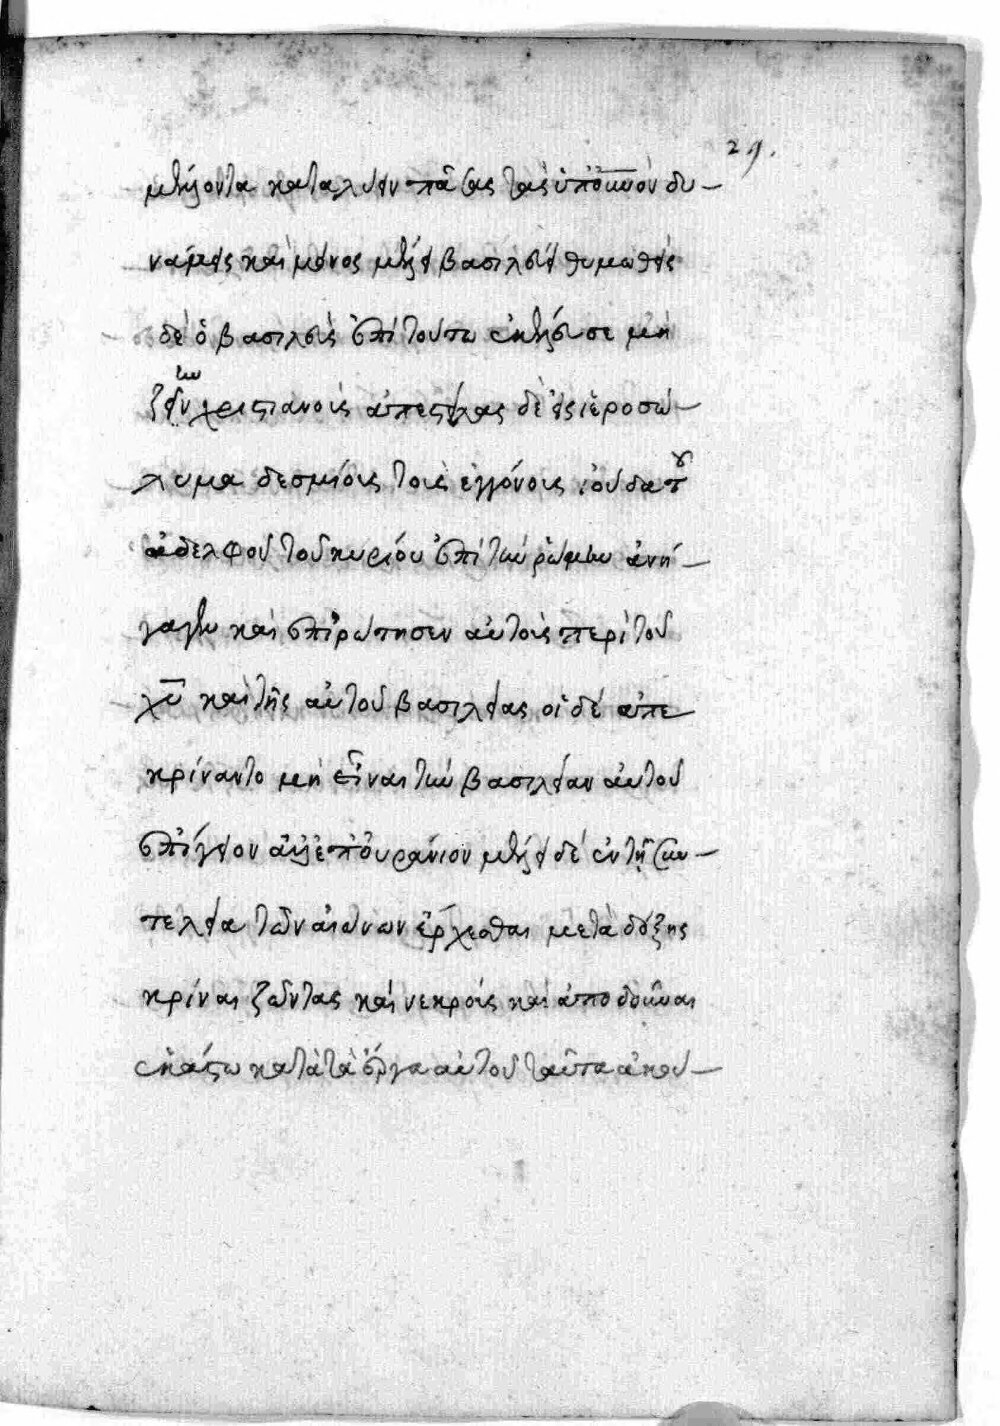 29.
μέλλοντα καταλύειν πάσας τὰς ὑπ' οὐνὸν δυ-
νάμεις καὶ μόνος μέλλει βασιλεύει θυμωθεὶς
δὲ ὁ βασιλεὺς ἐπὶ τούτω ἐκέλευσε μὴ
ζεῖν χριστιανοὺς ἀπεστείλας δὲ εἰς ἱεροσώ-
λυμα δεσμίους τοὺς ἐγγόνους ἰούδα τοῦ
ἀδελφοῦ τοῦ κυρίου ἐπὶ τὴν ῥώμην ἀνή-
γαγεν καὶ ἐπηρώτησεν αὐτοὺς περὶ τοῦ
χῦ καὶ τῆς αὐτοῦ βασιλείας οἱ δέ ἀπε
κρίναντο μὴ εἶναι τὴν βασιλείαν αὐτοῦ
ἐπίγειον ἀλλ' ἐπουράνιον μέλλει δέ ἐν τῇ συν-
τελεία τῶν αἰώνων ἔρχεσθαι μετὰ δόξης
κρίναι ζῶντας καὶ νεκροὺς καὶ ἀποδοῦναι
ἑκάστω κατὰ τὰ ἔργα αὐτοῦ ταῦτα ἀκού-